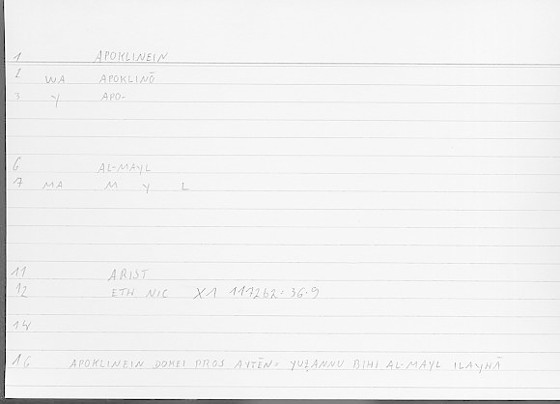 1 APOKLINEIN
2 WA APOKLINŌ
3 Y APO-
6 AL-MAYL
7 MA M Y L
11 ARIST
12 ETH NIC X1 1172b2= 36.9
14
16 APOKLINEIN DOKEI PROS AYTĒN= YUẒANNU BIHI AL-MAYL ILAYHĀ